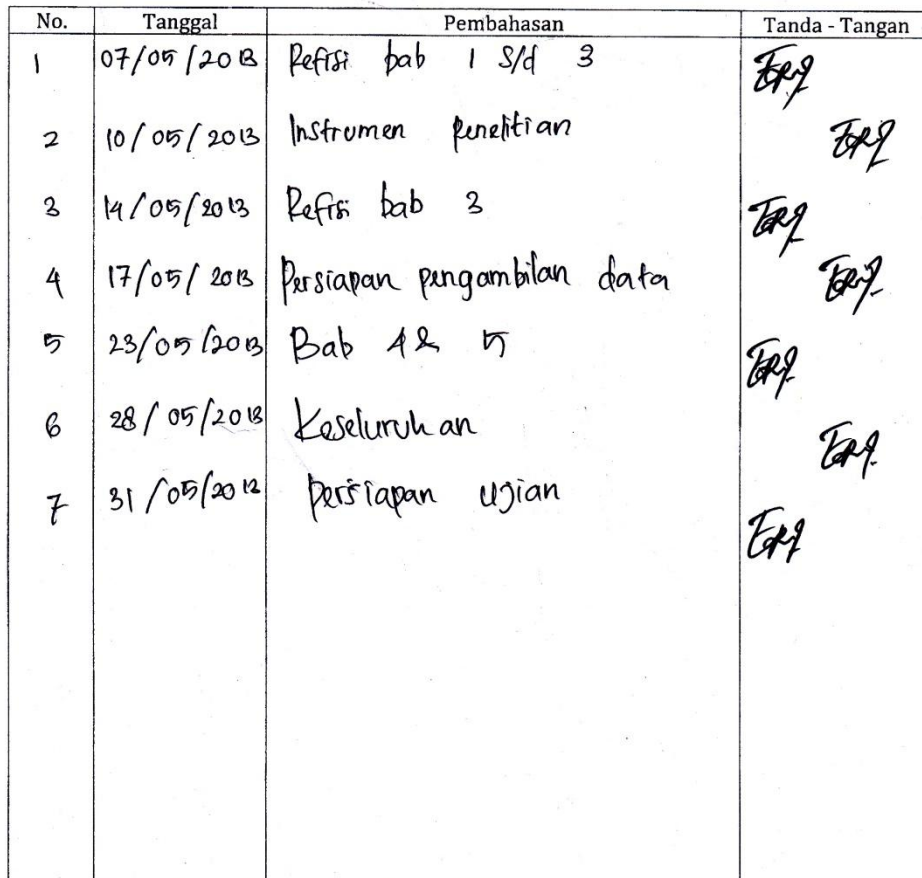 No. Tanggal Pembahasan Tanda - Tangan
1 07/05/2013 Refisi bab 1 s/d 3
2 10/05/2013 Instrumen penelitian
3 14/05/2013 Refisi bab 3
4 17/05/2013 Persiapan pengambilan data
5 23/05/2013 Bab 4 & 5
6 28/05/2013 Keseluruhan
7 31/05/2013 Persiapan ujian